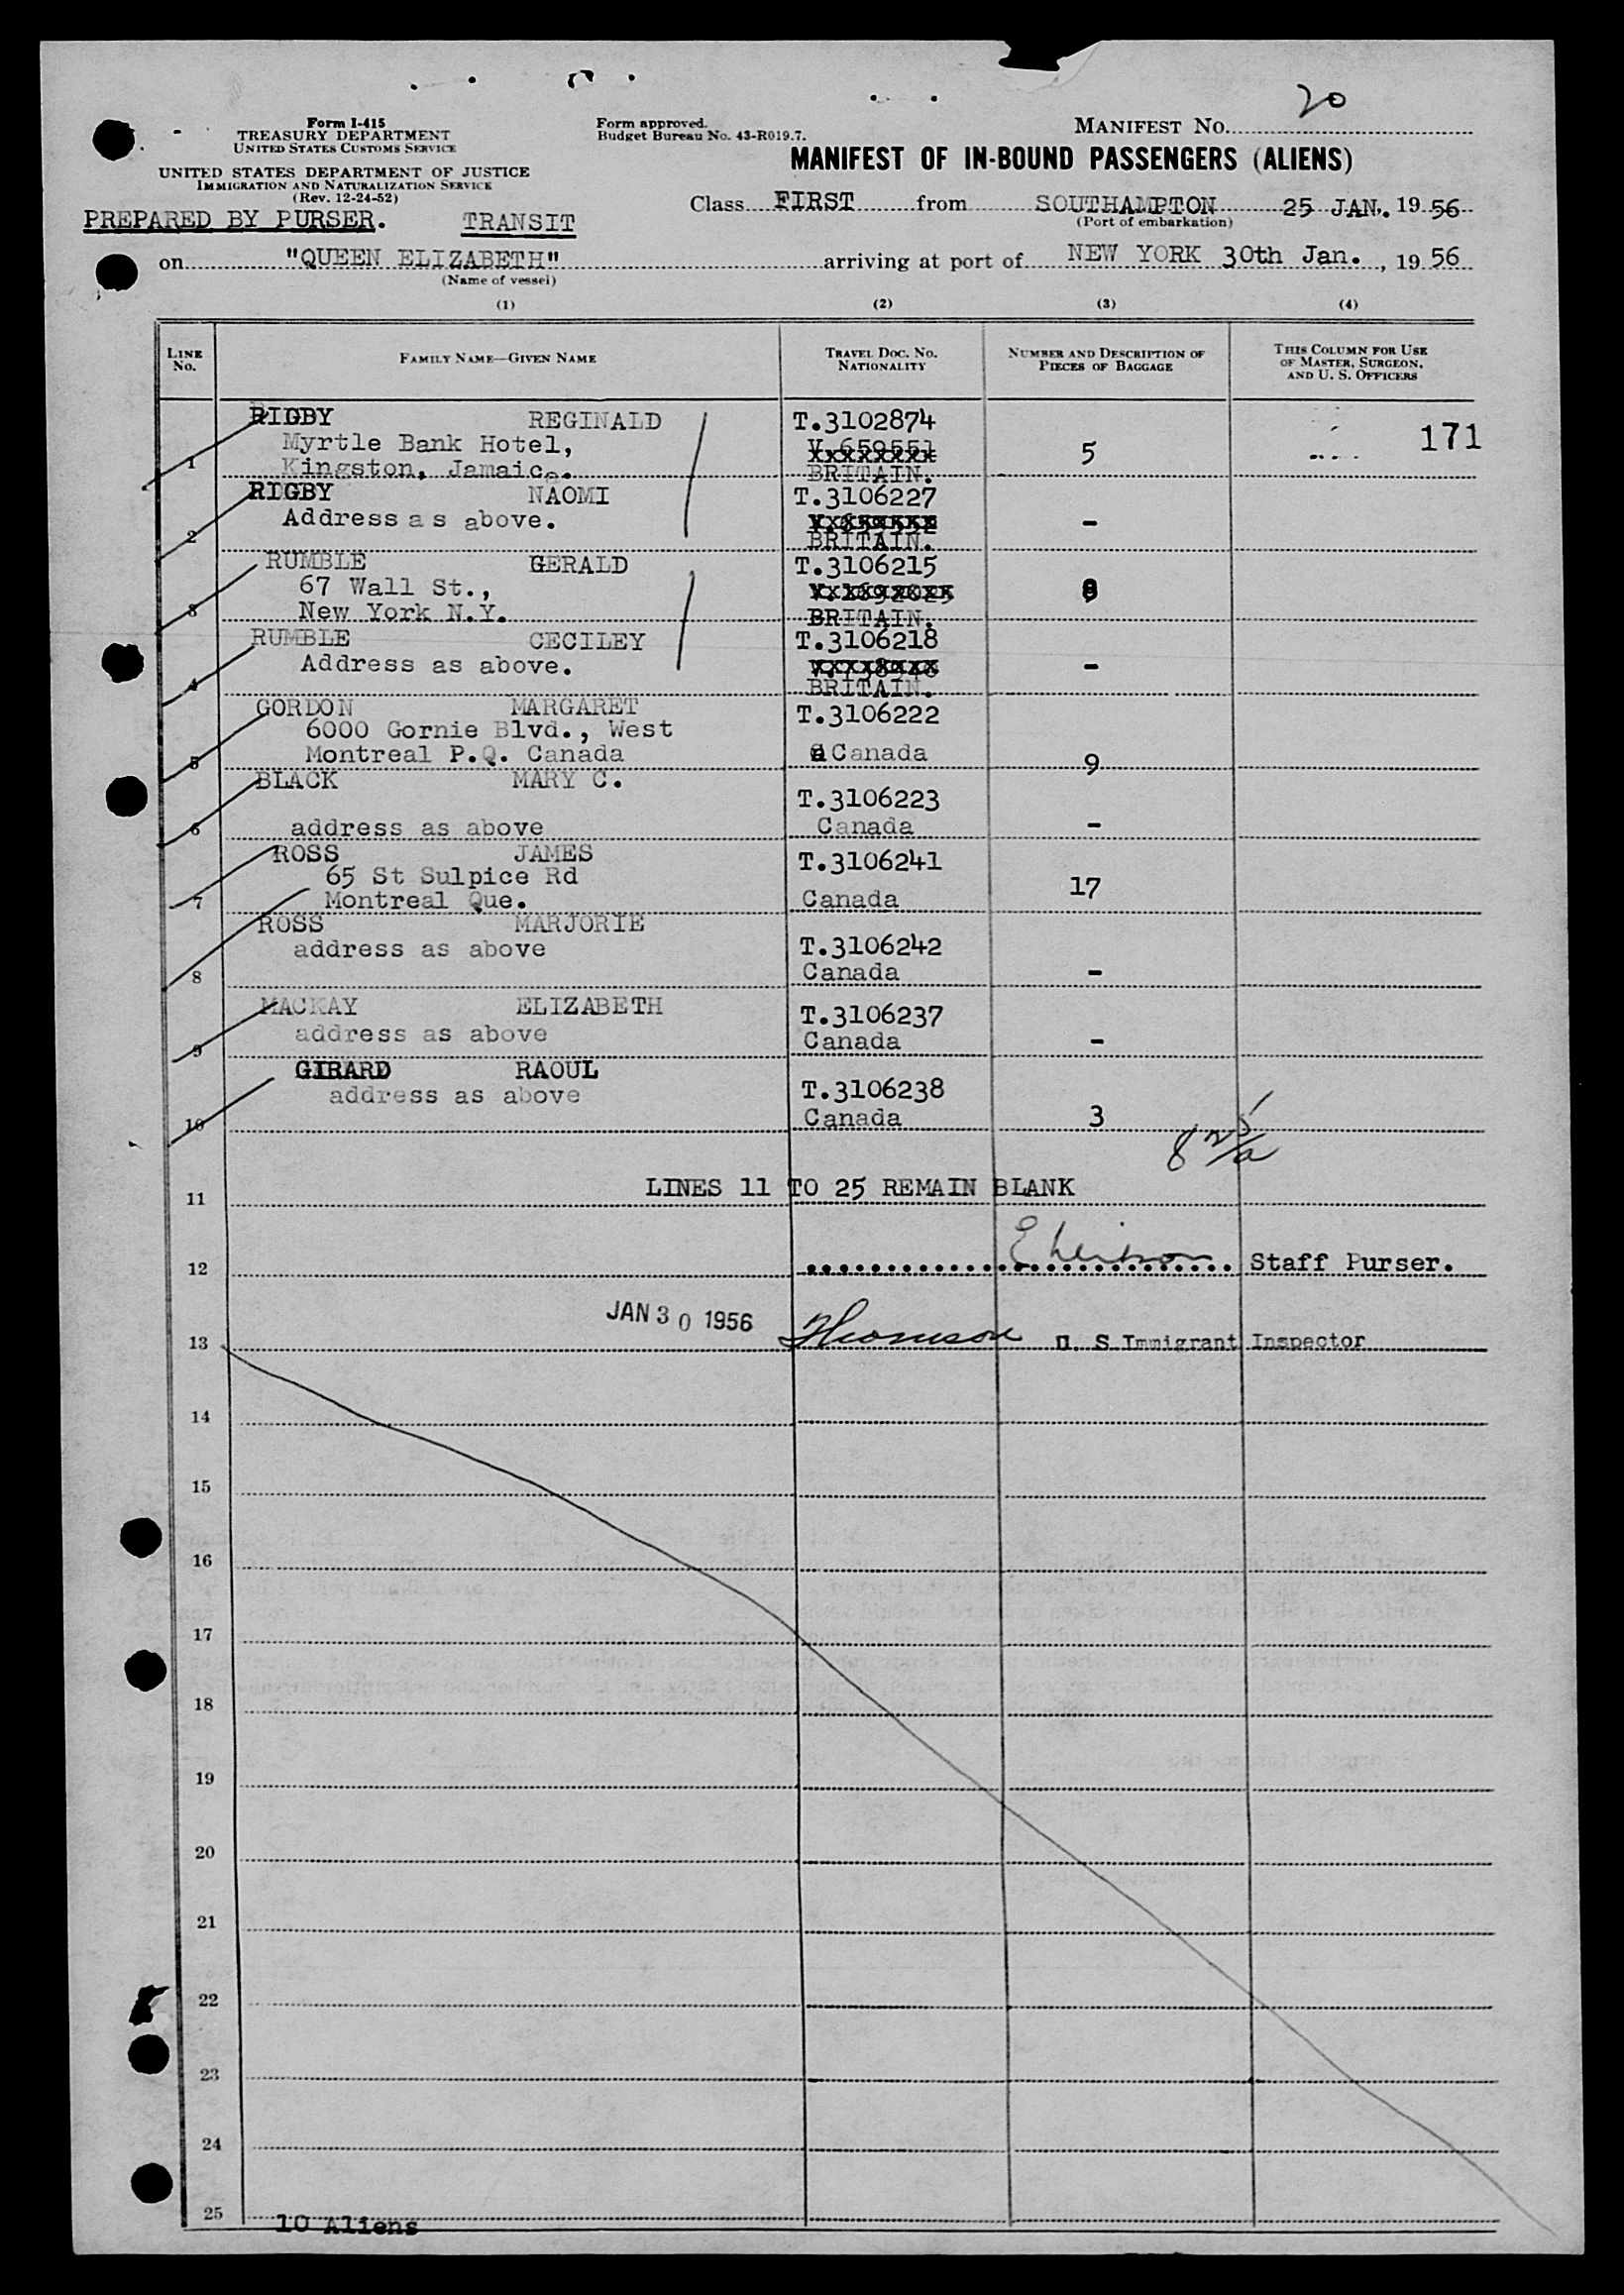 20
Form I-415
TREASURY DEPARTMENT
UNITED STATES CUSTOMS SERVICE
UNITED STATES DEPARTMENT OF JUSTICE
IMMIGRATION AND NATURALIZATION SERVICE
(Rev. 12-24-52)
Form approved.
Budget Bureau No. 43-R019.7.
MANIFEST NO.
MANIFEST OF IN-BOUND PASSENGERS (ALIENS)
PREPARED BY PURSER. TRANSIT
Class FIRST from SOUTHAMPTON 25 JAN. 1956
(Port of embarkation)
on "QUEEN ELIZABETH" arriving at port of NEW YORK 30th Jan. , 1956
(Name of vessel)
(1) (2) (3) (4)
LINE NO. FAMILY NAME—GIVEN NAME TRAVEL DOC. NO. NATIONALITY NUMBER AND DESCRIPTION OF PIECES OF BAGGAGE THIS COLUMN FOR USE OF MASTER, SURGEON, AND U. S. OFFICERS
RIGBY REGINALD T.3102874 171
Myrtle Bank Hotel, V.659551
1 Kingston, Jamaica. BRITAIN. 5
RIGBY NAOMI T.3106227
Address as above. -
2 BRITAIN.
RUMBLE GERALD T.3106215
67 Wall St., 8
3 New York N.Y. BRITAIN.
RUMBLE CECILEY T.3106218
Address as above. -
4 BRITAIN.
GORDON MARGARET T.3106222
6000 Gornie Blvd., West
5 Montreal P.Q. Canada Canada 9
BLACK MARY C. T.3106223
6 address as above Canada -
ROSS JAMES T.3106241
65 St Sulpice Rd 17
7 Montreal Que. Canada
ROSS MARJORIE
address as above T.3106242
8 Canada -
MACKAY ELIZABETH T.3106237
9 address as above Canada -
GIRARD RAOUL T.3106238
address as above
10 Canada 3
11 LINES 11 TO 25 REMAIN BLANK
12 Staff Purser.
JAN 30 1956
13 Thomson U. S Immigrant Inspector
14
15
16
17
18
19
20
21
22
23
24
25
10 Aliens